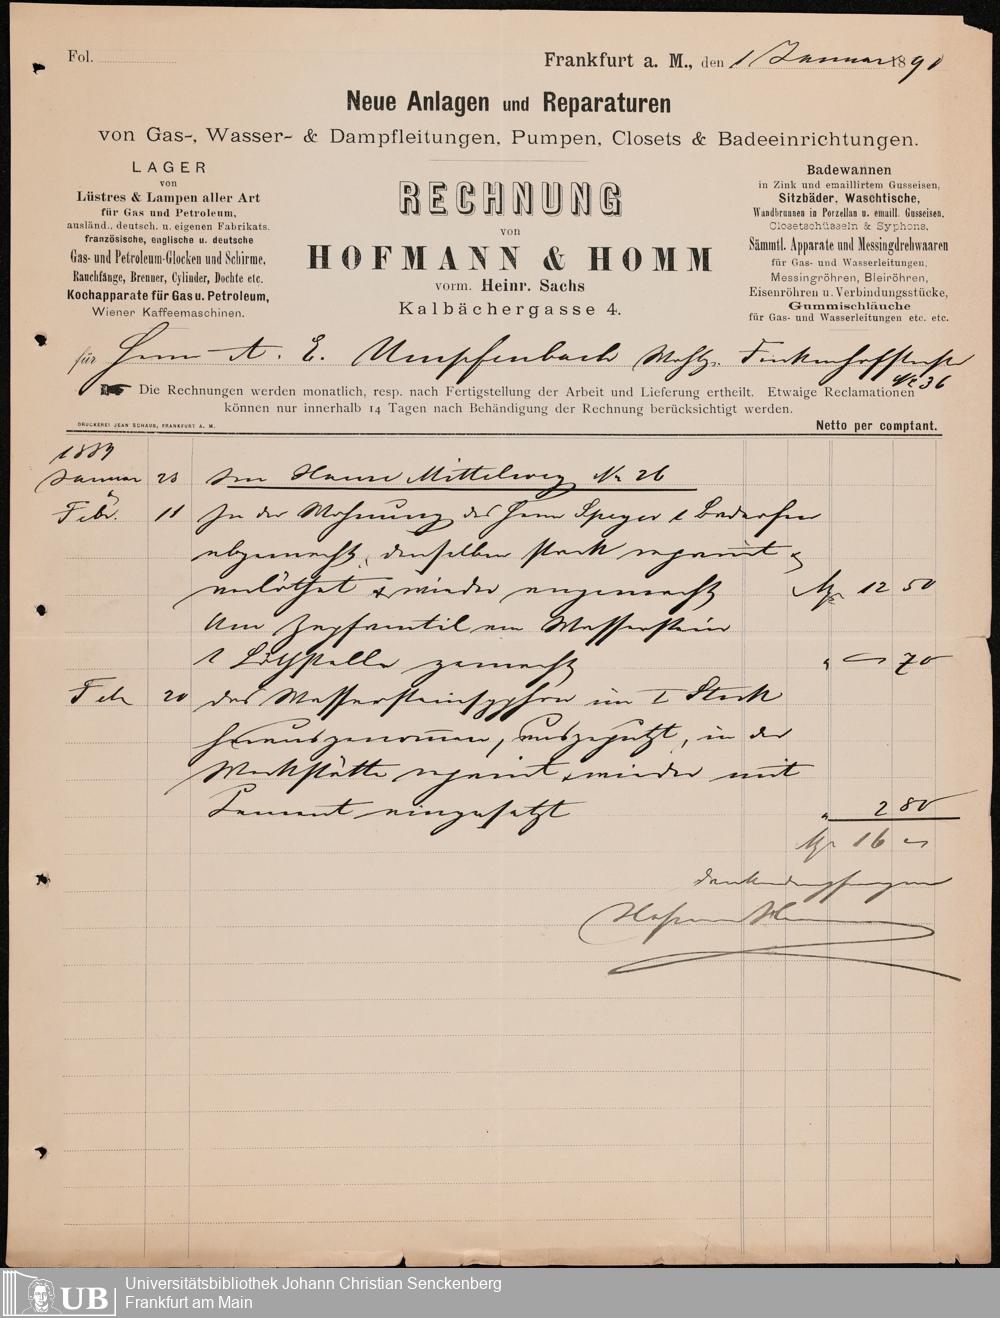 Fol.
Frankfurt a. M., den 1 Januar 1890
Neue Anlagen und Reparaturen
von Gas-, Wasser- & Dampfleitungen, Pumpen, Closets & Badeeinrichtungen.
LAGER
von
Lüstres & Lampen aller Art
für Gas und Petroleum,
ausländ., deutsch. u. eigenen Fabrikats.
französische, englische u. deutsche
Gas- und Petroleum-Glocken und Schirme,
Rauchfänge, Brenner, Cylinder, Dochte etc.
Kochapparate für Gas u. Petroleum,
Wiener Kaffeemaschinen.
RECHNUNG
von
HOFMANN & HOMM
vorm. Heinr. Sachs
Kalbächergasse 4.
Badewannen
in Zink und emaillirtem Gusseisen,
Sitzbäder, Waschtische,
Wandbrunnen in Porzellan u. emaill. Gusseisen.
Closetschüsseln & Syphons,
Sämmtl. Apparate und Messingdrehwaaren
für Gas- und Wasserleitungen,
Messingröhren, Bleiröhren,
Eisenröhren u. Verbindungsstücke,
Gummischläuche
für Gas- und Wasserleitungen etc. etc.
für Herrn A. E. Umpfenbach
No 36
Die Rechnungen werden monatlich, resp. nach Fertigstellung der Arbeit und Lieferung ertheilt. Etwaige Reclamationen
können nur innerhalb 14 Tagen nach Behändigung der Rechnung berücksichtigt werden.
DRUCKEREI JEAN SCHAUB, FRANKFURT A. M.
Netto per comptant.
1889
Januar 23 Im Hause Mittelweg No 26
Febr. 11 In der Wohnung des Herrn Speyer 1 Badeofen
abgemacht, denselben stark reparirt &
verlöthet & wieder angemacht Mk 12 50
Am Zapfventil am Wasserstein
1 Löthstelle gemacht " – 70
Feb 20 das Wassersteinsyphon im I Stock
herausgenommen, ausgeputzt, in der
Werkstätte reparirt & wieder mit
Cement eingesetzt " 2 80
Mk 16 –
dankend empfangen
Hofmann & Homm
Universitätsbibliothek Johann Christian Senckenberg
Frankfurt am Main
UB